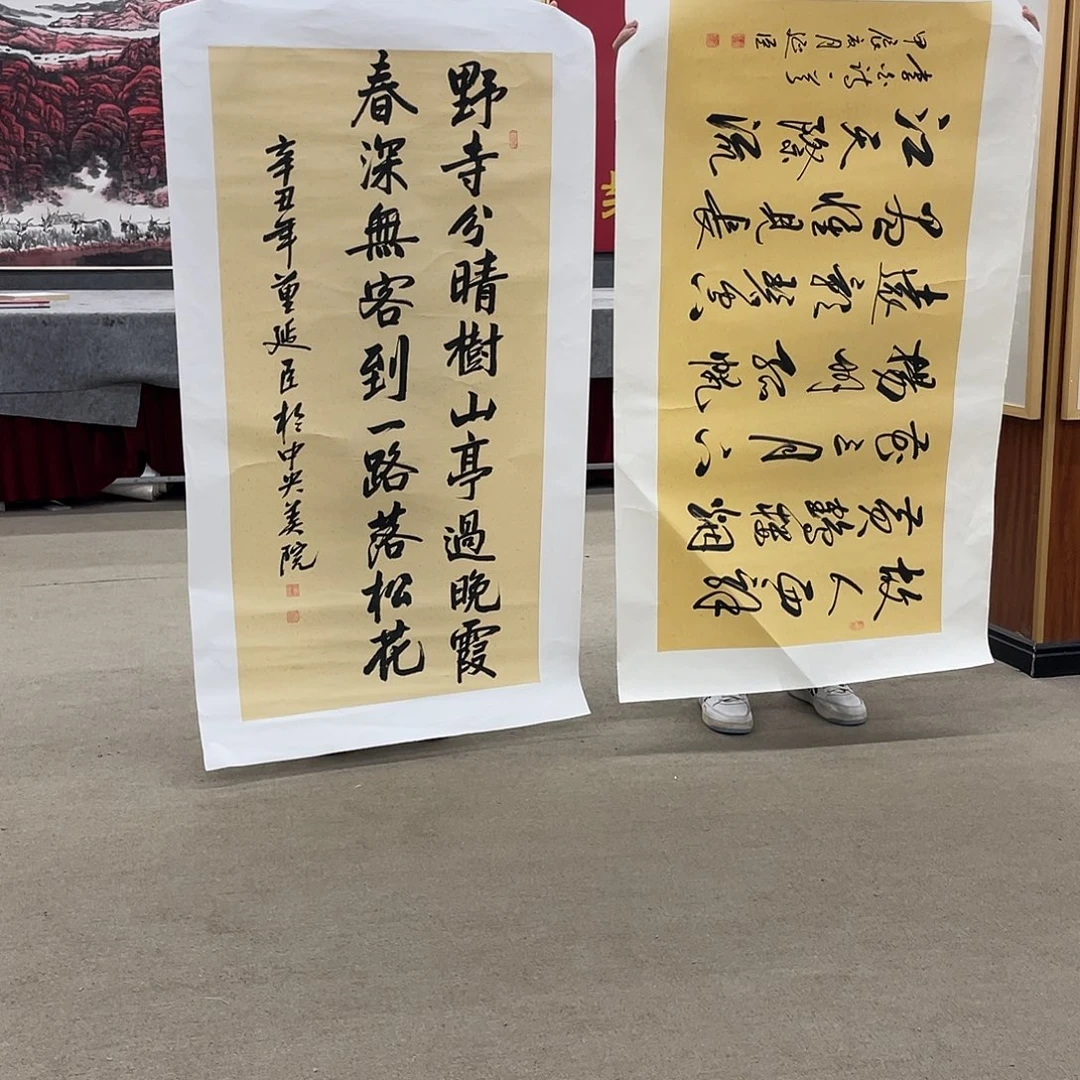 野寺分晴樹山亭過晚霞
春深無客到一路落松花
辛丑年延臣於中央美院
故人西辭
黃鶴樓烟
花三月下
揚州孤帆
遠影碧空
盡惟見長
江天際流
李白詩一首
甲辰夏月延臣